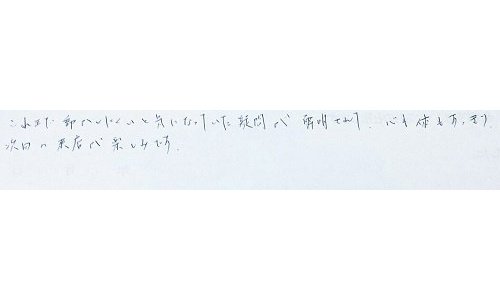 これまで 動かしにくいと気になっていた疑問が 解明されて、心も体もすっきり
次回の来店が楽しみです。